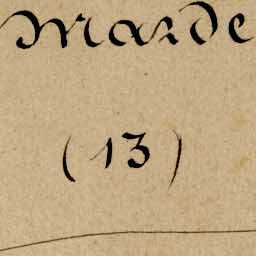 Marde
(13)